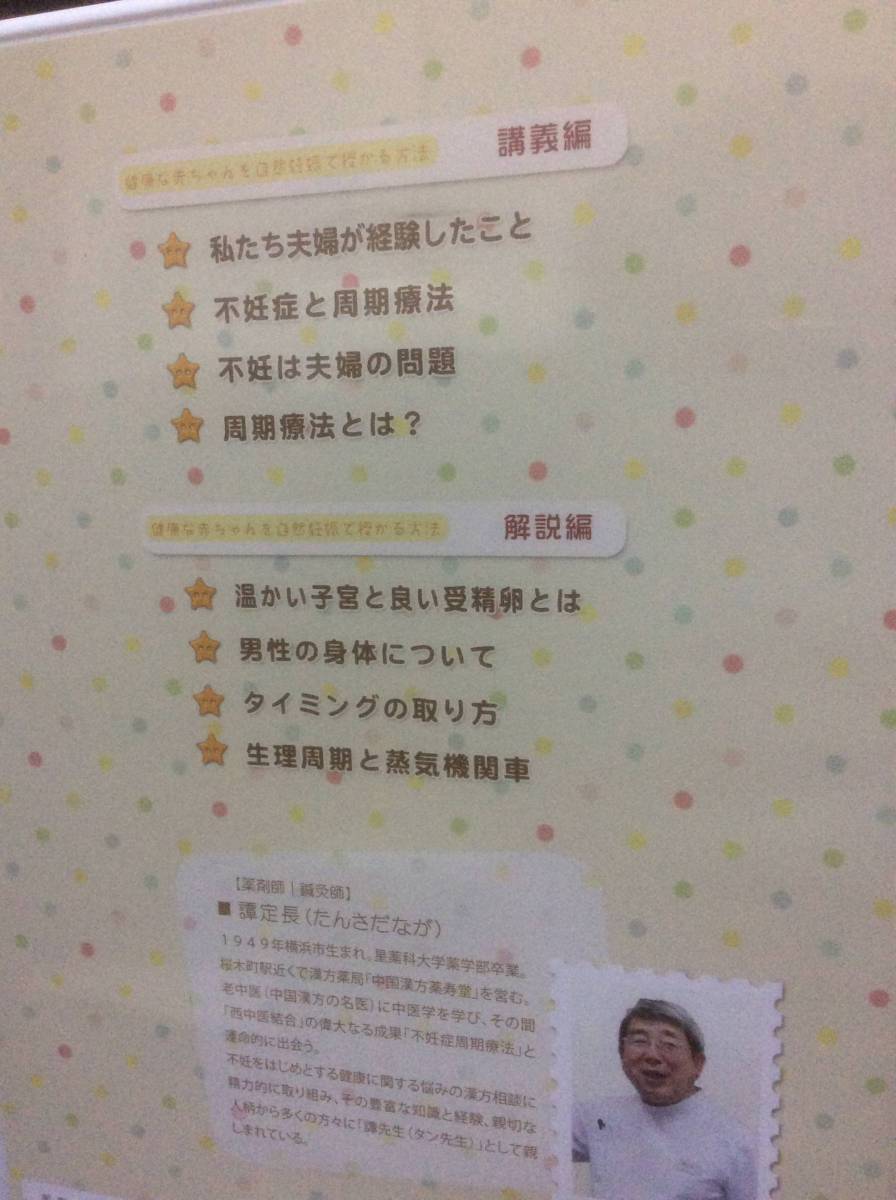 健康な赤ちゃんを自然妊娠で授かる方法 講義編
私たち夫婦が経験したこと
不妊症と周期療法
不妊は夫婦の問題
周期療法とは？
健康な赤ちゃんを自然妊娠で授かる方法 解説編
温かい子宮と良い受精卵とは
男性の身体について
タイミングの取り方
生理周期と蒸気機関車
【薬剤師｜鍼灸師】
■ 譚定長（たんさだなが）
1949年横浜市生まれ。星薬科大学薬学部卒業。
桜木町駅近くで漢方薬局「中国漢方薬寿堂」を営む。
老中医（中国漢方の名医）に中医学を学び、その間
「西中医結合」の偉大なる成果「不妊症周期療法」と
運命的に出会う。
不妊をはじめとする健康に関する悩みの漢方相談に
精力的に取り組み、その豊富な知識と経験、親切な
人柄から多くの方々に「譚先生（タン先生）」として親
しまれている。